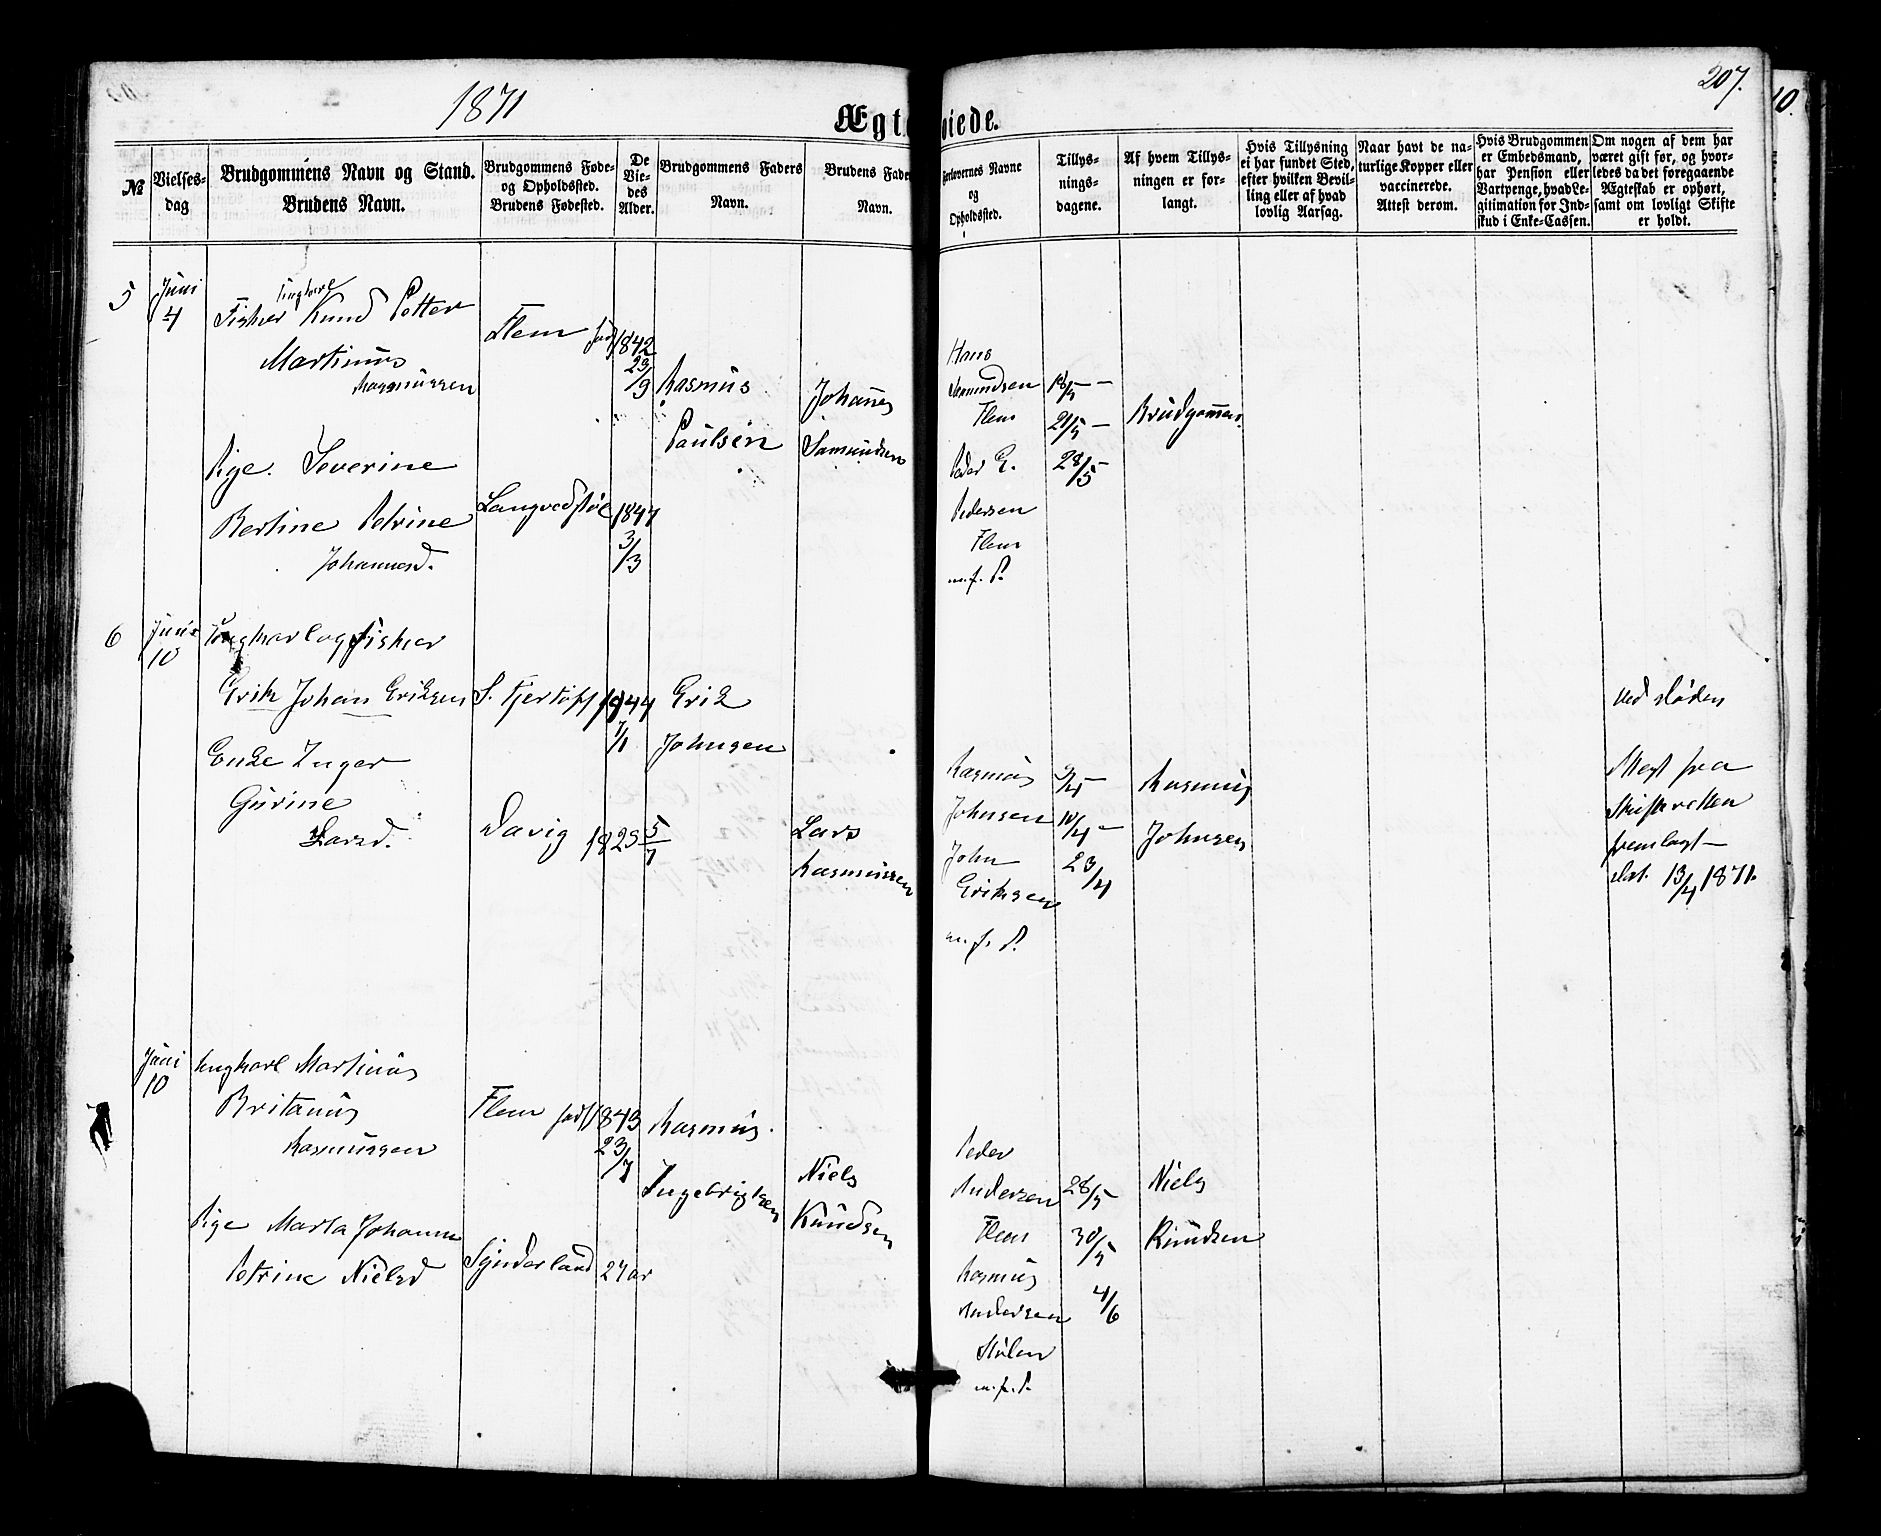 1871
207.
10.
Ægt viede.
№
Vielses-
dag
Brudgommens Navn og Stand.
Brudens Navn.
Brudgommens Føde-
og Opholdssted.
Brudens Fødested.
De
Vie-
des
Alder.
Brudgommens Faders
Navn.
Brudens Fade
Navn.
Forlovernes Navne
og
Opholdssted.
Tillys-
nings-
dagene.
Af hvem Tillys-
ningen er for-
langt.
Hvis Tillysning
ei har fundet Sted,
efter hvilken Bevil-
ling eller af hvad
lovlig Aarsag.
Naar havt de na-
turlige Kopper eller
vaccinerede.
Attest derom.
Hvis Brudgommen
er Embedsmand,
har Pension eller
Vartpenge, hvad Le-
gitimation for Ind-
skud i Enke-Cassen.
Om nogen af dem har
været gift før, og hvor-
ledes da det foregaaende
Ægteskab er ophørt,
samt om lovligt Skifte
er holdt.
5
Juni
4
Ungkarl
Fisker Knud Petter
Martinus
Rasmussen
Flem født
1842
23/9
Rasmus
Paulsen
Johanes
Samundsen
Pige. Severine
Bertine Petrine
Johannesd.
Langvedstøl
1847
3/3
Hans
Samundsen
Flem
Peder E.
Pedersen
Flem
m. f. P.
18/5 —
21/5 —
28/5 —
Brudgommen.
6
Juni
10
Ungkarl og Fisker
Erik Johan Eriksen
S. Fjertoft
1844
7/1
Erik
Johnsen
Enke Inger
Gurine
Larsd.
Davig
1825 5/7
Lars
Rasmussen
Rasmus
Johnsen
John
Eriksen
m. f. P.
9/4 —
10/4 —
23/4
Rasmus
Johnsen
ved døden
Attest fra
Skifteretten
fremlagt —
dat. 13/4 1871.
Juni
10
Ungkarl Martinus
Britanus
Rasmussen
Flem født
1843
23/7
Rasmus
Ingebrigtsen
Niels
Knudsen
Pige Marta Johanne
Petrine Nielsd
Synderland
27 ar
Peder
Andersen
Flem
Rasmus
Andersen
Stølen
m. f. P.
28/5 —
30/5
4/6
Niels
Knudsen